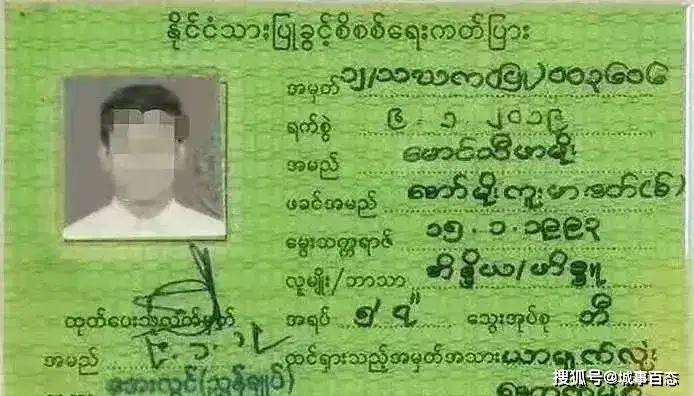 နိုင်ငံသားပြုခွင့်စိစစ်ရေးကတ်ပြား
အမှတ် ၁၂/သဃက(ပြု)၀၀၃၆၀၆
ရက်စွဲ ၆.၁.၂၀၁၉
အမည် မောင်သီဟမိုး
ဖခင်အမည်
မွေးသက္ကရာဇ် ၁၅.၁.၁၉၉၃
လူမျိုး/ဘာသာ အိန္ဒိယ/ဟိန္ဒူ
အရပ် ၅' ၇" သွေးအုပ်စု ဘီ
ထင်ရှားသည့်အမှတ်အသား
ထုတ်ပေးသူလက်မှတ်
အမည်
အေးလွင်(ညွှန်ချုပ်)
搜狐号@城事百态